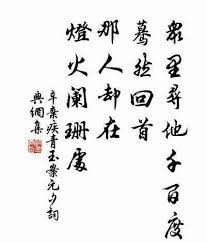 眾里尋他千百度
驀然回首
那人却在
燈火闌珊處
辛棄疾青玉案元夕詞
典綢集